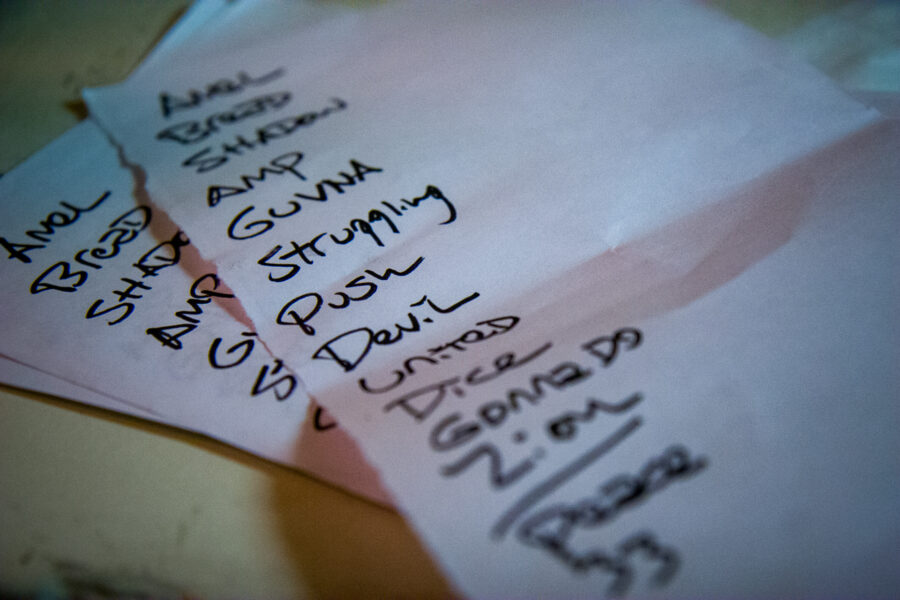 AMEL
BreaD
SHADOW
AMP
GUVNA
Struggling
Push
Devil
UNITED
Dice
GONNA DO
Zion
Peace
33
AMEL
BreaD
SHAD
AMP
G
S